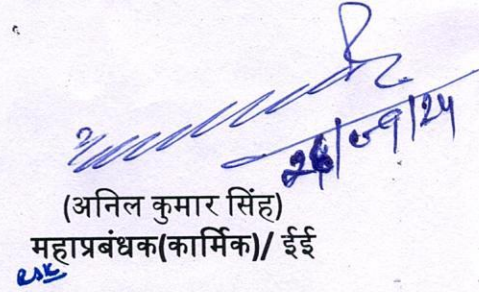 26/09/24
(अनिल कुमार सिंह)
महाप्रबंधक(कार्मिक)/ ईई